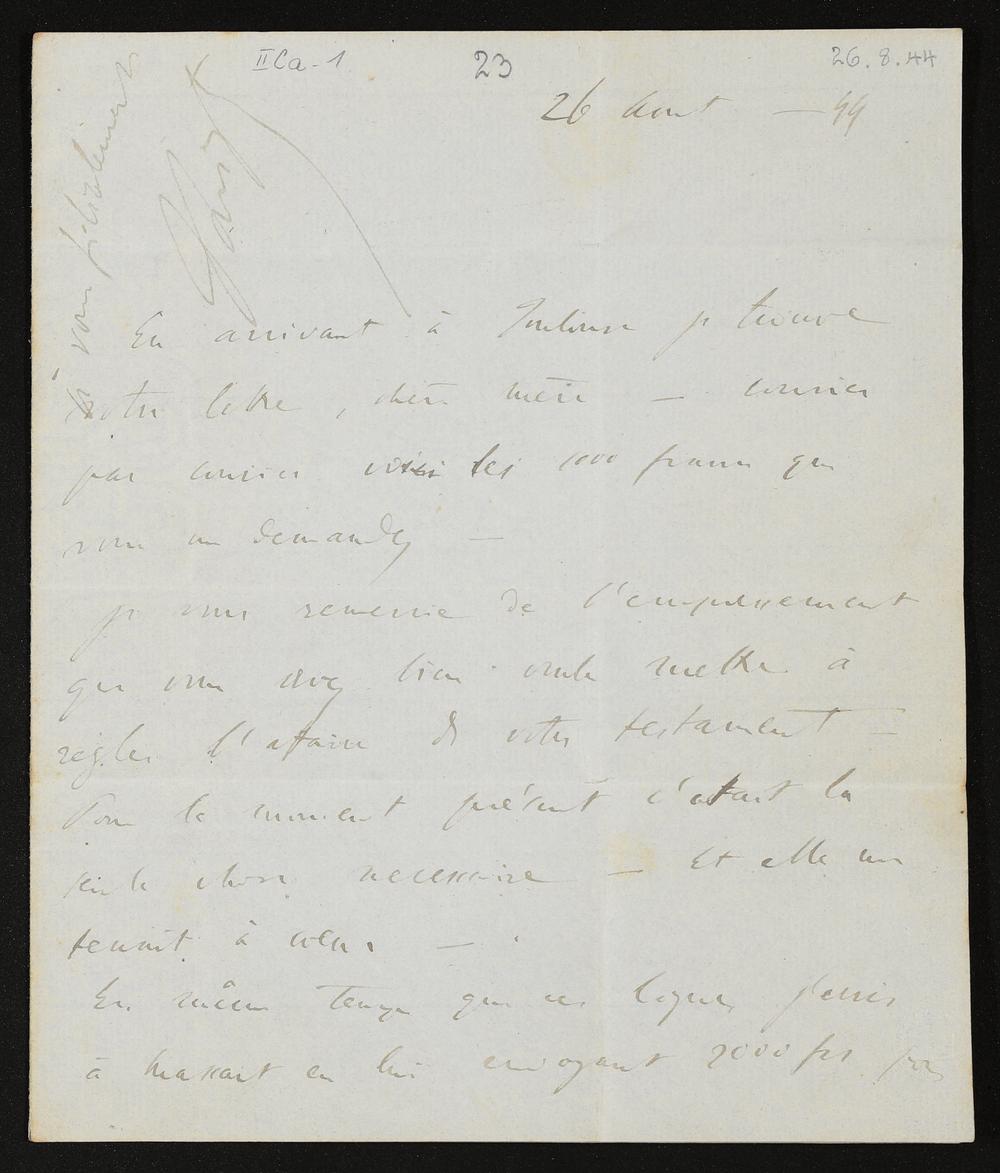 IICa-1 23 26.8.44
26 Aout — 44
En arrivant à Toulouse je trouve
votre lettre, chère mère — courrier
par courrier voici les 1000 francs que
vous me demandez —
Je vous remercie de l'empressement
que vous avez bien voulu mettre à
régler l'affaire de votre testament —
Pour le moment présent c'etait la
seule chose necessaire — Et elle me
tenait à cœur —
En même temps que ces lignes j'ecris
à Massart en lui envoyant 2000 frs
à vous filialement